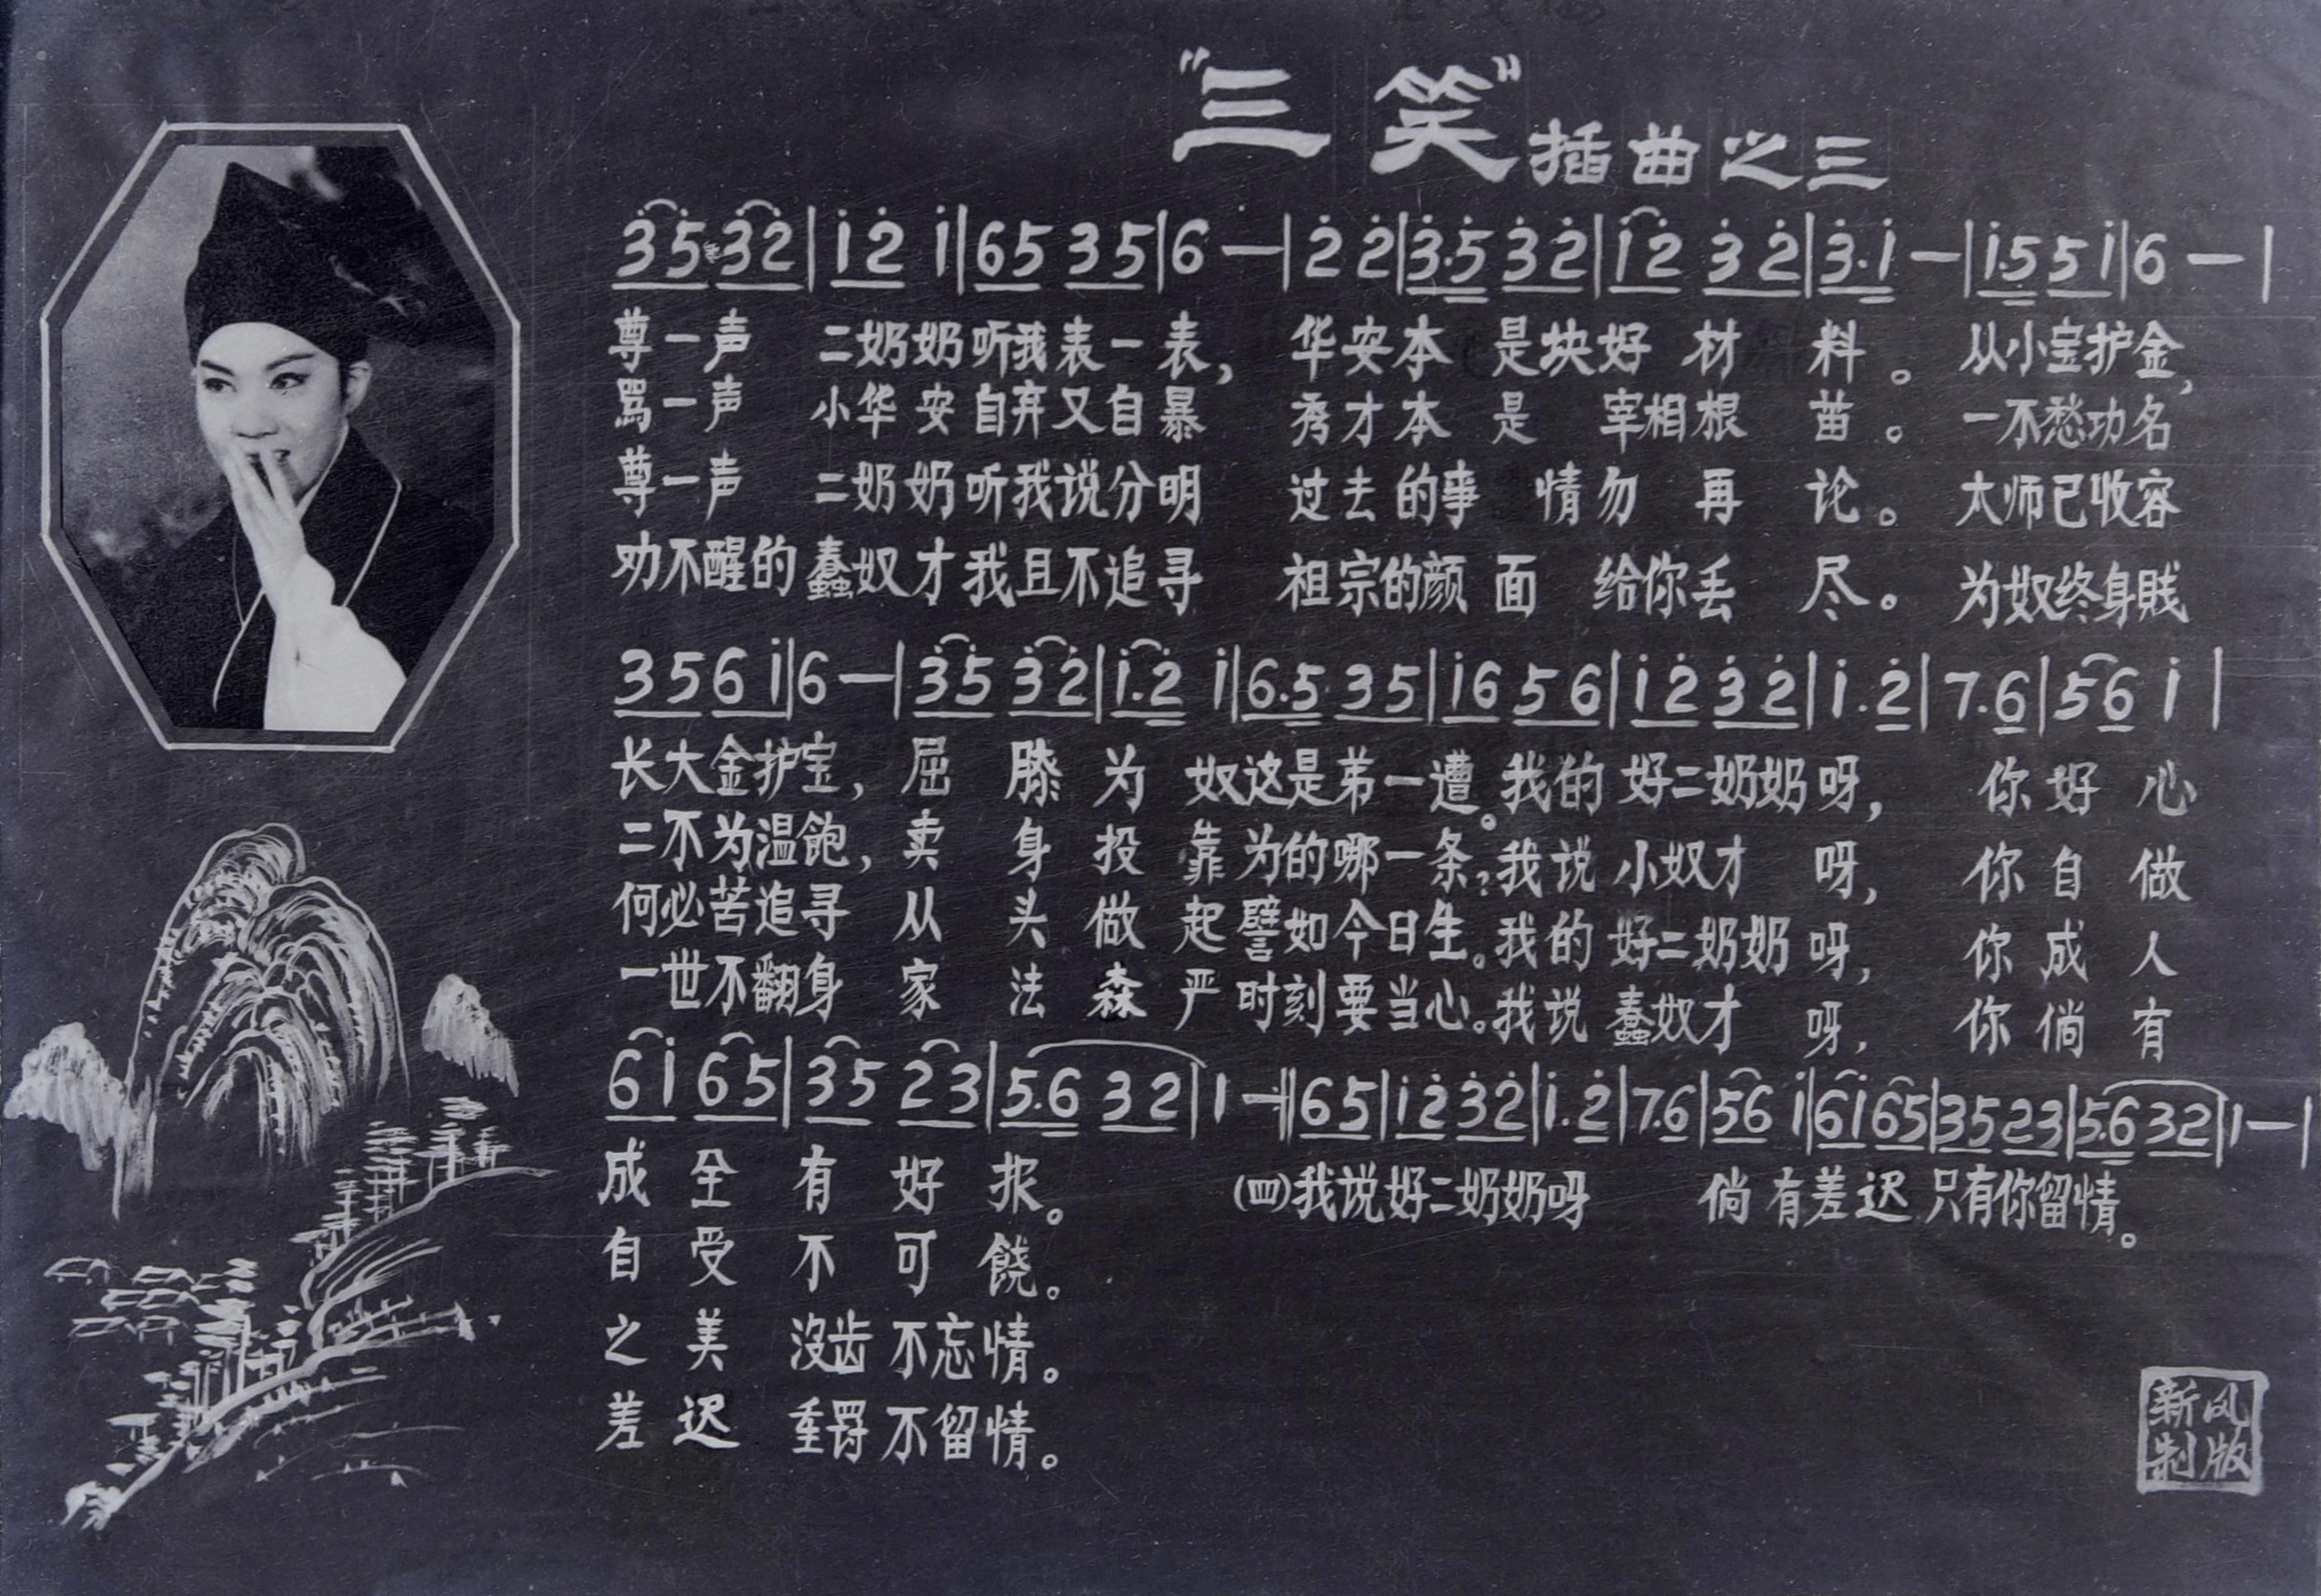 "三笑"插曲之三
3532|12 1|65 35|6 —|2 2|3.5 32|12 32|3.1 —|1.5 5 1|6 —|
尊一声 二奶奶听我表一表, 华安本 是块好材料。从小宝护金,
骂一声 小华安自弃又自暴 秀才本是 宰相根苗。一不愁功名
尊一声 二奶奶听我说分明 过去的事 情勿再论。太师已收容
劝不醒的蠢奴才我且不追寻 祖宗的颜面 给你丢尽。为奴终身贱
3 5 6 1|6 —|35 32|1.2 1|6.5 35|16 56|12 32|1.2|7.6|56 1|
长大金护宝, 屈膝为奴这是弟一遭。我的好二奶奶呀, 你好心
二不为温飽, 卖身投靠为的哪一条?我说小奴才呀, 你自做
何必苦追寻 从头做起譬如今日生。我的好二奶奶呀, 你成人
一世不翻身 家法森严时刻要当心。我说蠢奴才呀, 你倘有
61 65|35 23|5.6 32|1 —‖65|12 32|1.2|7.6|56 1|61 65|35 23|5.6 32|1 —|
成全有好报。 (四)我说好二奶奶呀 倘有差迟只有你留情。
自受不可饶。
之美 没齿不忘情。
差迟 重罚不留情。
新风
制版